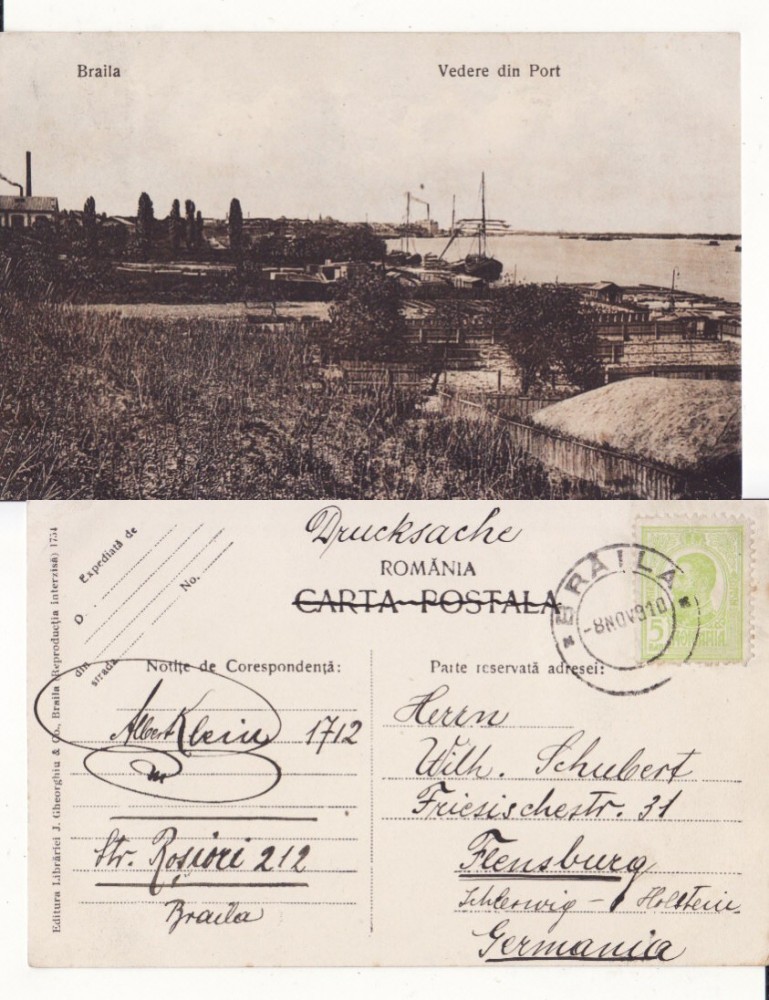 Braila
Vedere din Port
Drucksache
ROMÂNIA
CARTA POSTALA
Expediată de
D
No.
din
strada
BRĂILA
-8NOV910
5
BANI
ROMANIA
Notițe de Corespondență:
Parte reservată adresei:
Albert Klein 1712
Str. Roșiori 212
Braila
Herrn
Wilh. Schubert
Friesischestr. 31
Flensburg
Schleswig - Holstein
Germania
Editura Librăriei J. Gheorghiu & Co., Braila (Reproducția interzisă) 1754